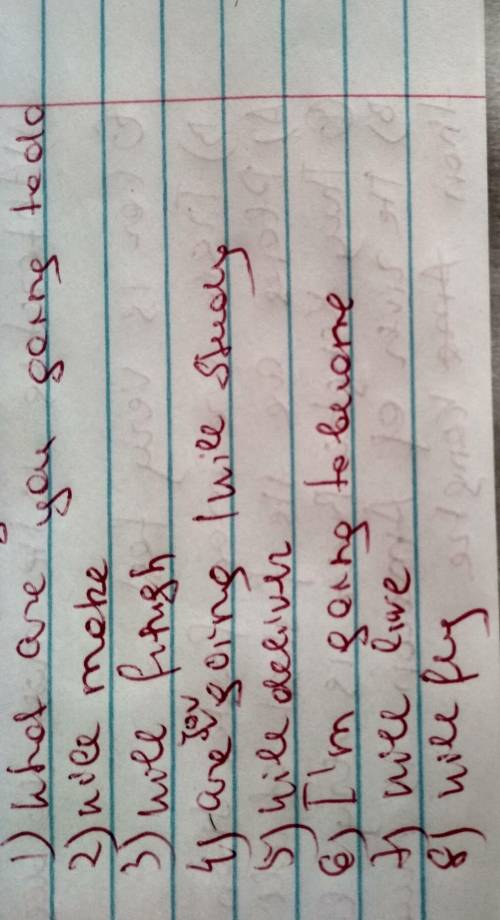 1) what are you going to do
2) will make
3) will finish
4) are you going / will study
5) will deliver
6) I'm going to become
7) will live
8) will fly